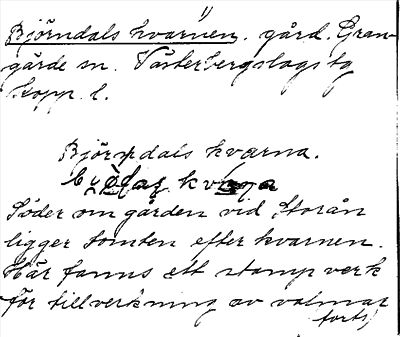 Björndals kvarnen. gård. Gran-
gärde sn. Västerbergslags tg
Kopp. l.
Björndals kvarna.
kvana
Söder om gården vid Storån
ligger tomten efter kvarnen.
Här fanns ett stampverk
för tillverkning av valmar
forts)